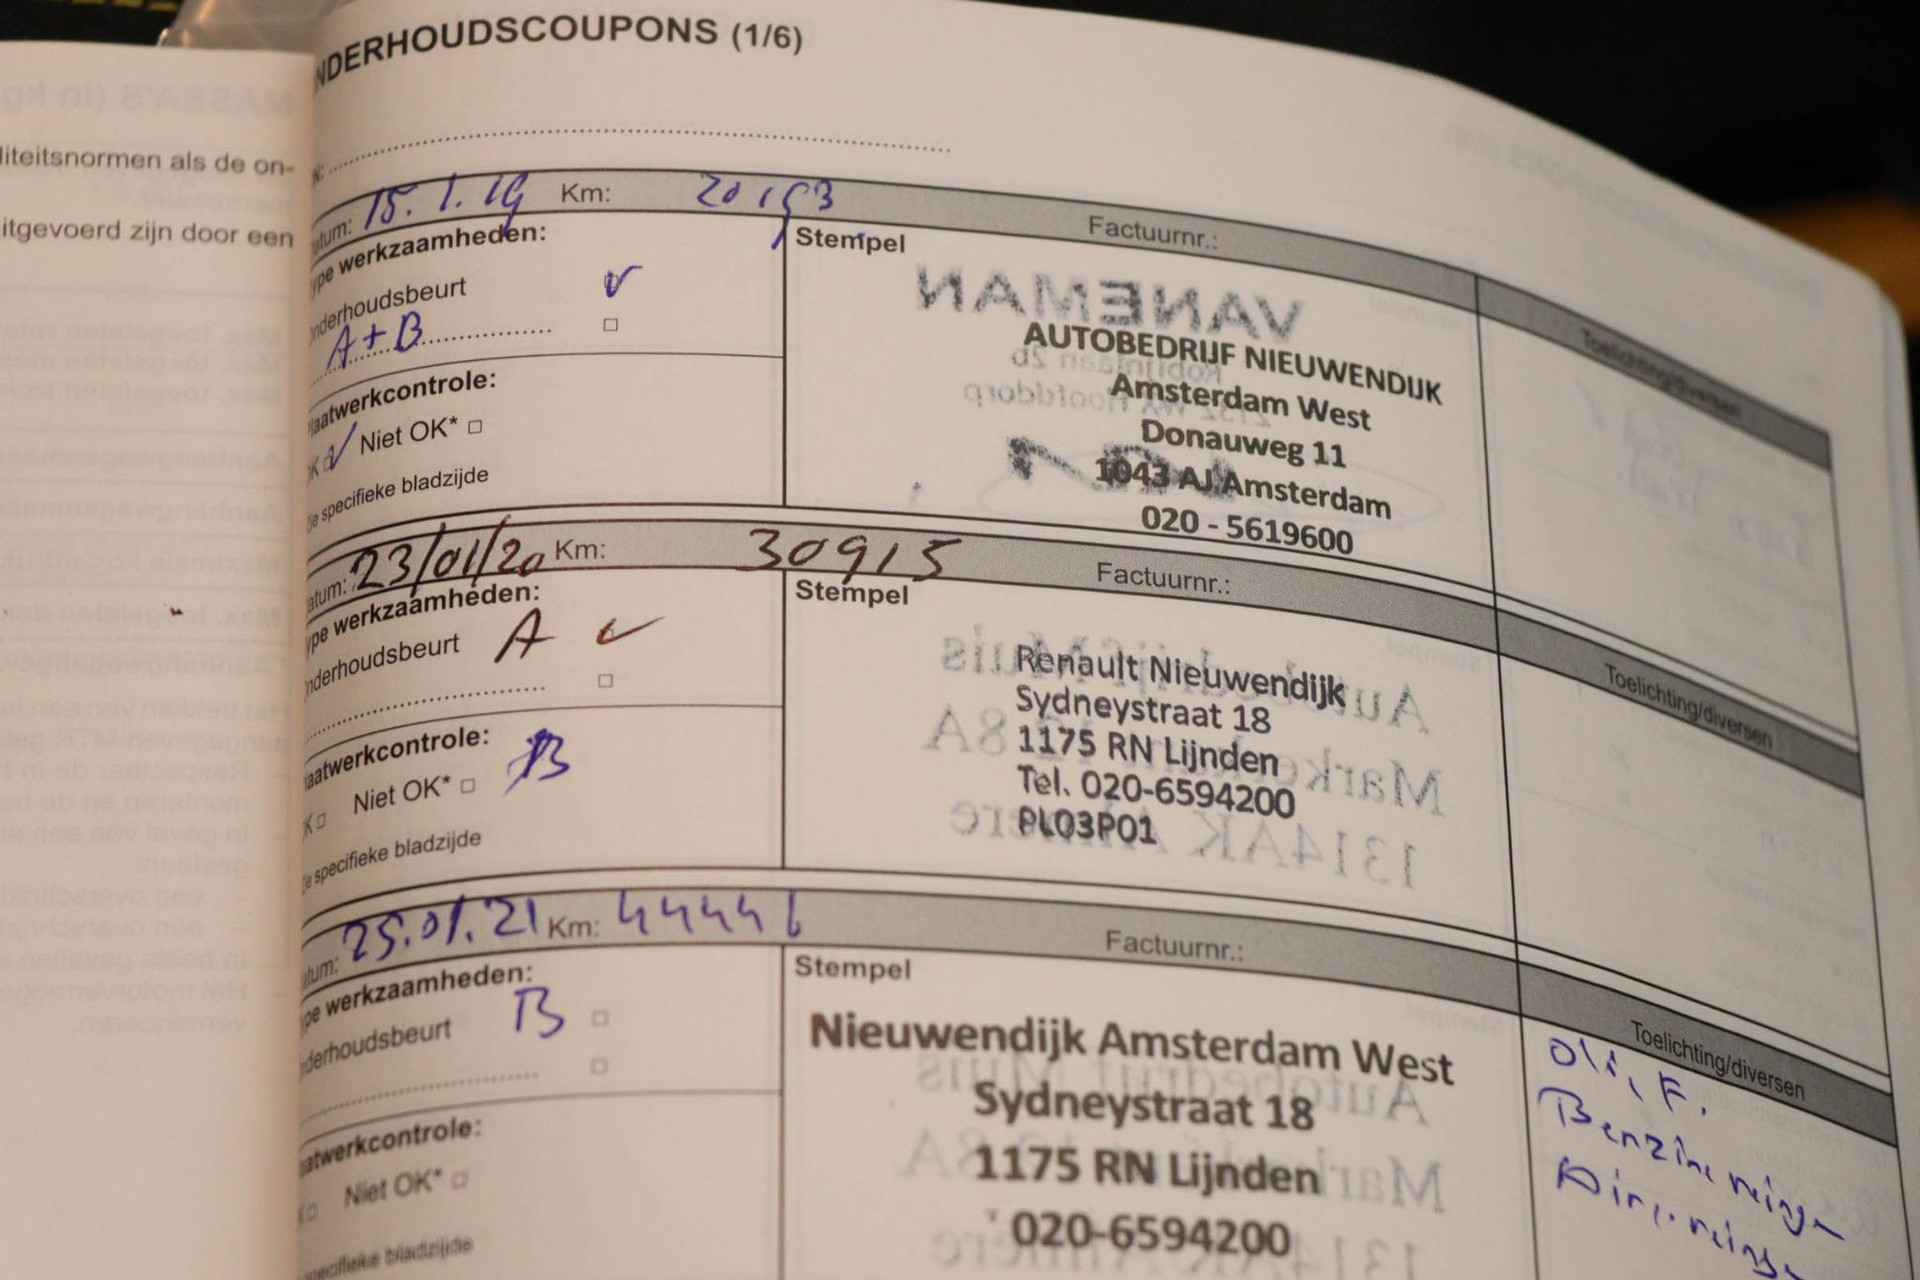 NDERHOUDSCOUPONS (1/6)
liteitsnormen als de on-
itgevoerd zijn door een
atum: 15.1.19 Km: 20193 Factuurnr.:
ype werkzaamheden:
nderhoudsbeurt
A+B
Stempel
AUTOBEDRIJF NIEUWENDIJK
Amsterdam West
Donauweg 11
1043 AJ Amsterdam
020 - 5619600
Toelichting/diversen
laatwerkcontrole:
K Niet OK*
ie specifieke bladzijde
atum: 23/01/20 Km: 30915 Factuurnr.:
ype werkzaamheden:
nderhoudsbeurt A
Stempel
Renault Nieuwendijk
Sydneystraat 18
1175 RN Lijnden
Tel. 020-6594200
PL03P01
Toelichting/diversen
aatwerkcontrole:
K Niet OK* B
e specifieke bladzijde
atum: 25.01.21 Km: 44446 Factuurnr.:
ype werkzaamheden:
nderhoudsbeurt B
Stempel
Nieuwendijk Amsterdam West
Sydneystraat 18
1175 RN Lijnden
020-6594200
Toelichting/diversen
Benzinereinigr
atwerkcontrole:
Niet OK*
specifieke bladzijde